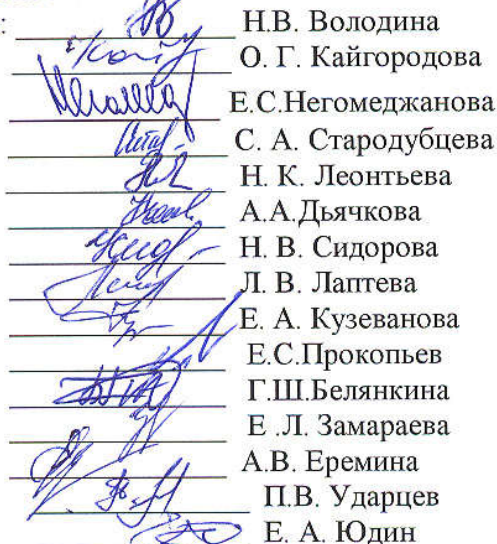 : Н.В. Володина
О. Г. Кайгородова
Е.С.Негомеджанова
С. А. Стародубцева
Н. К. Леонтьева
А.А.Дьячкова
Н. В. Сидорова
Л. В. Лаптева
Е. А. Кузеванова
Е.С.Прокопьев
Г.Ш.Белянкина
Е .Л. Замараева
А.В. Еремина
П.В. Ударцев
Е. А. Юдин